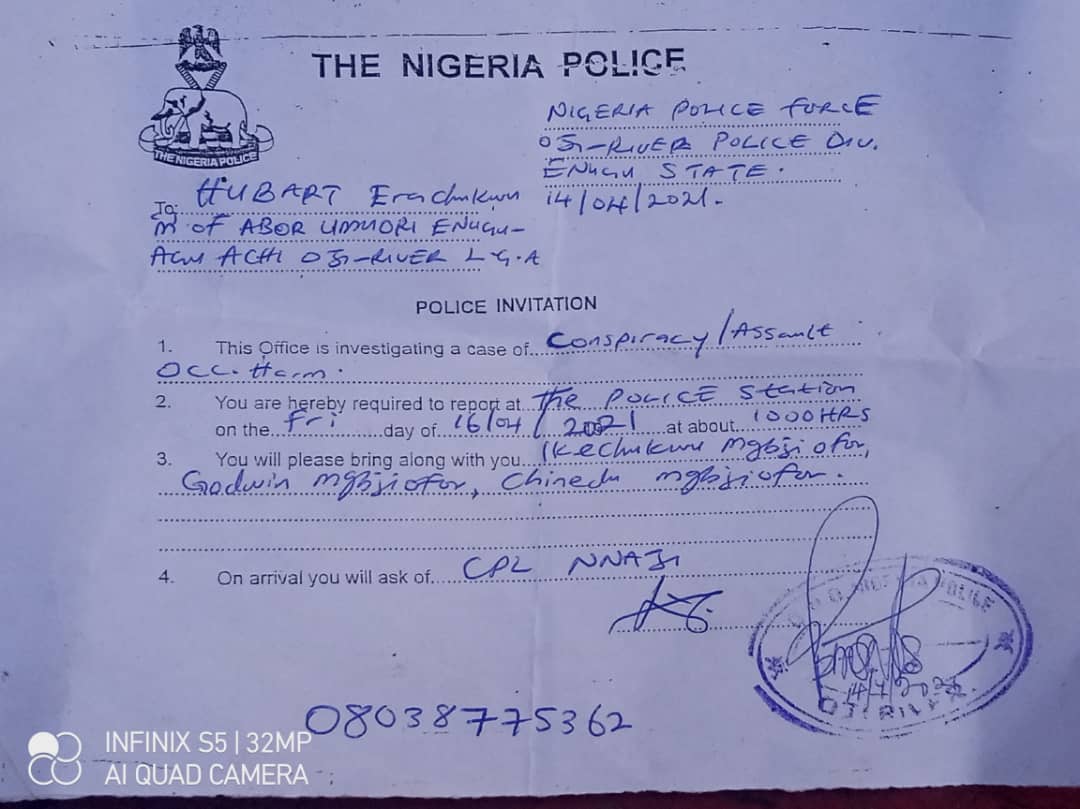 THE NIGERIA POLICE
THE NIGERIA POLICE
NIGERIA POLICE FORCE
OJI-RIVER POLICE DIV.
ENUGU STATE.
14/04/2021.
To: HUBART
M OF ABOR UMUORI ENUGU-
AGU ACHI OJI-RIVER L.G.A
POLICE INVITATION
1. This Office is investigating a case of Conspiracy/Assault
OCC. Harm.
2. You are hereby required to report at The POLICE Station
on the Fri day of 16/04/2021 at about 1000HRS
3. You will please bring along with you Ikechukwu Mgbjiofor,
Godwin Mgbjiofor, Chinedu Mgbjiofor.
4. On arrival you will ask of CPL NNAJI
POLICE
OJI RIVER
08038775362
INFINIX S5 | 32MP
AI QUAD CAMERA